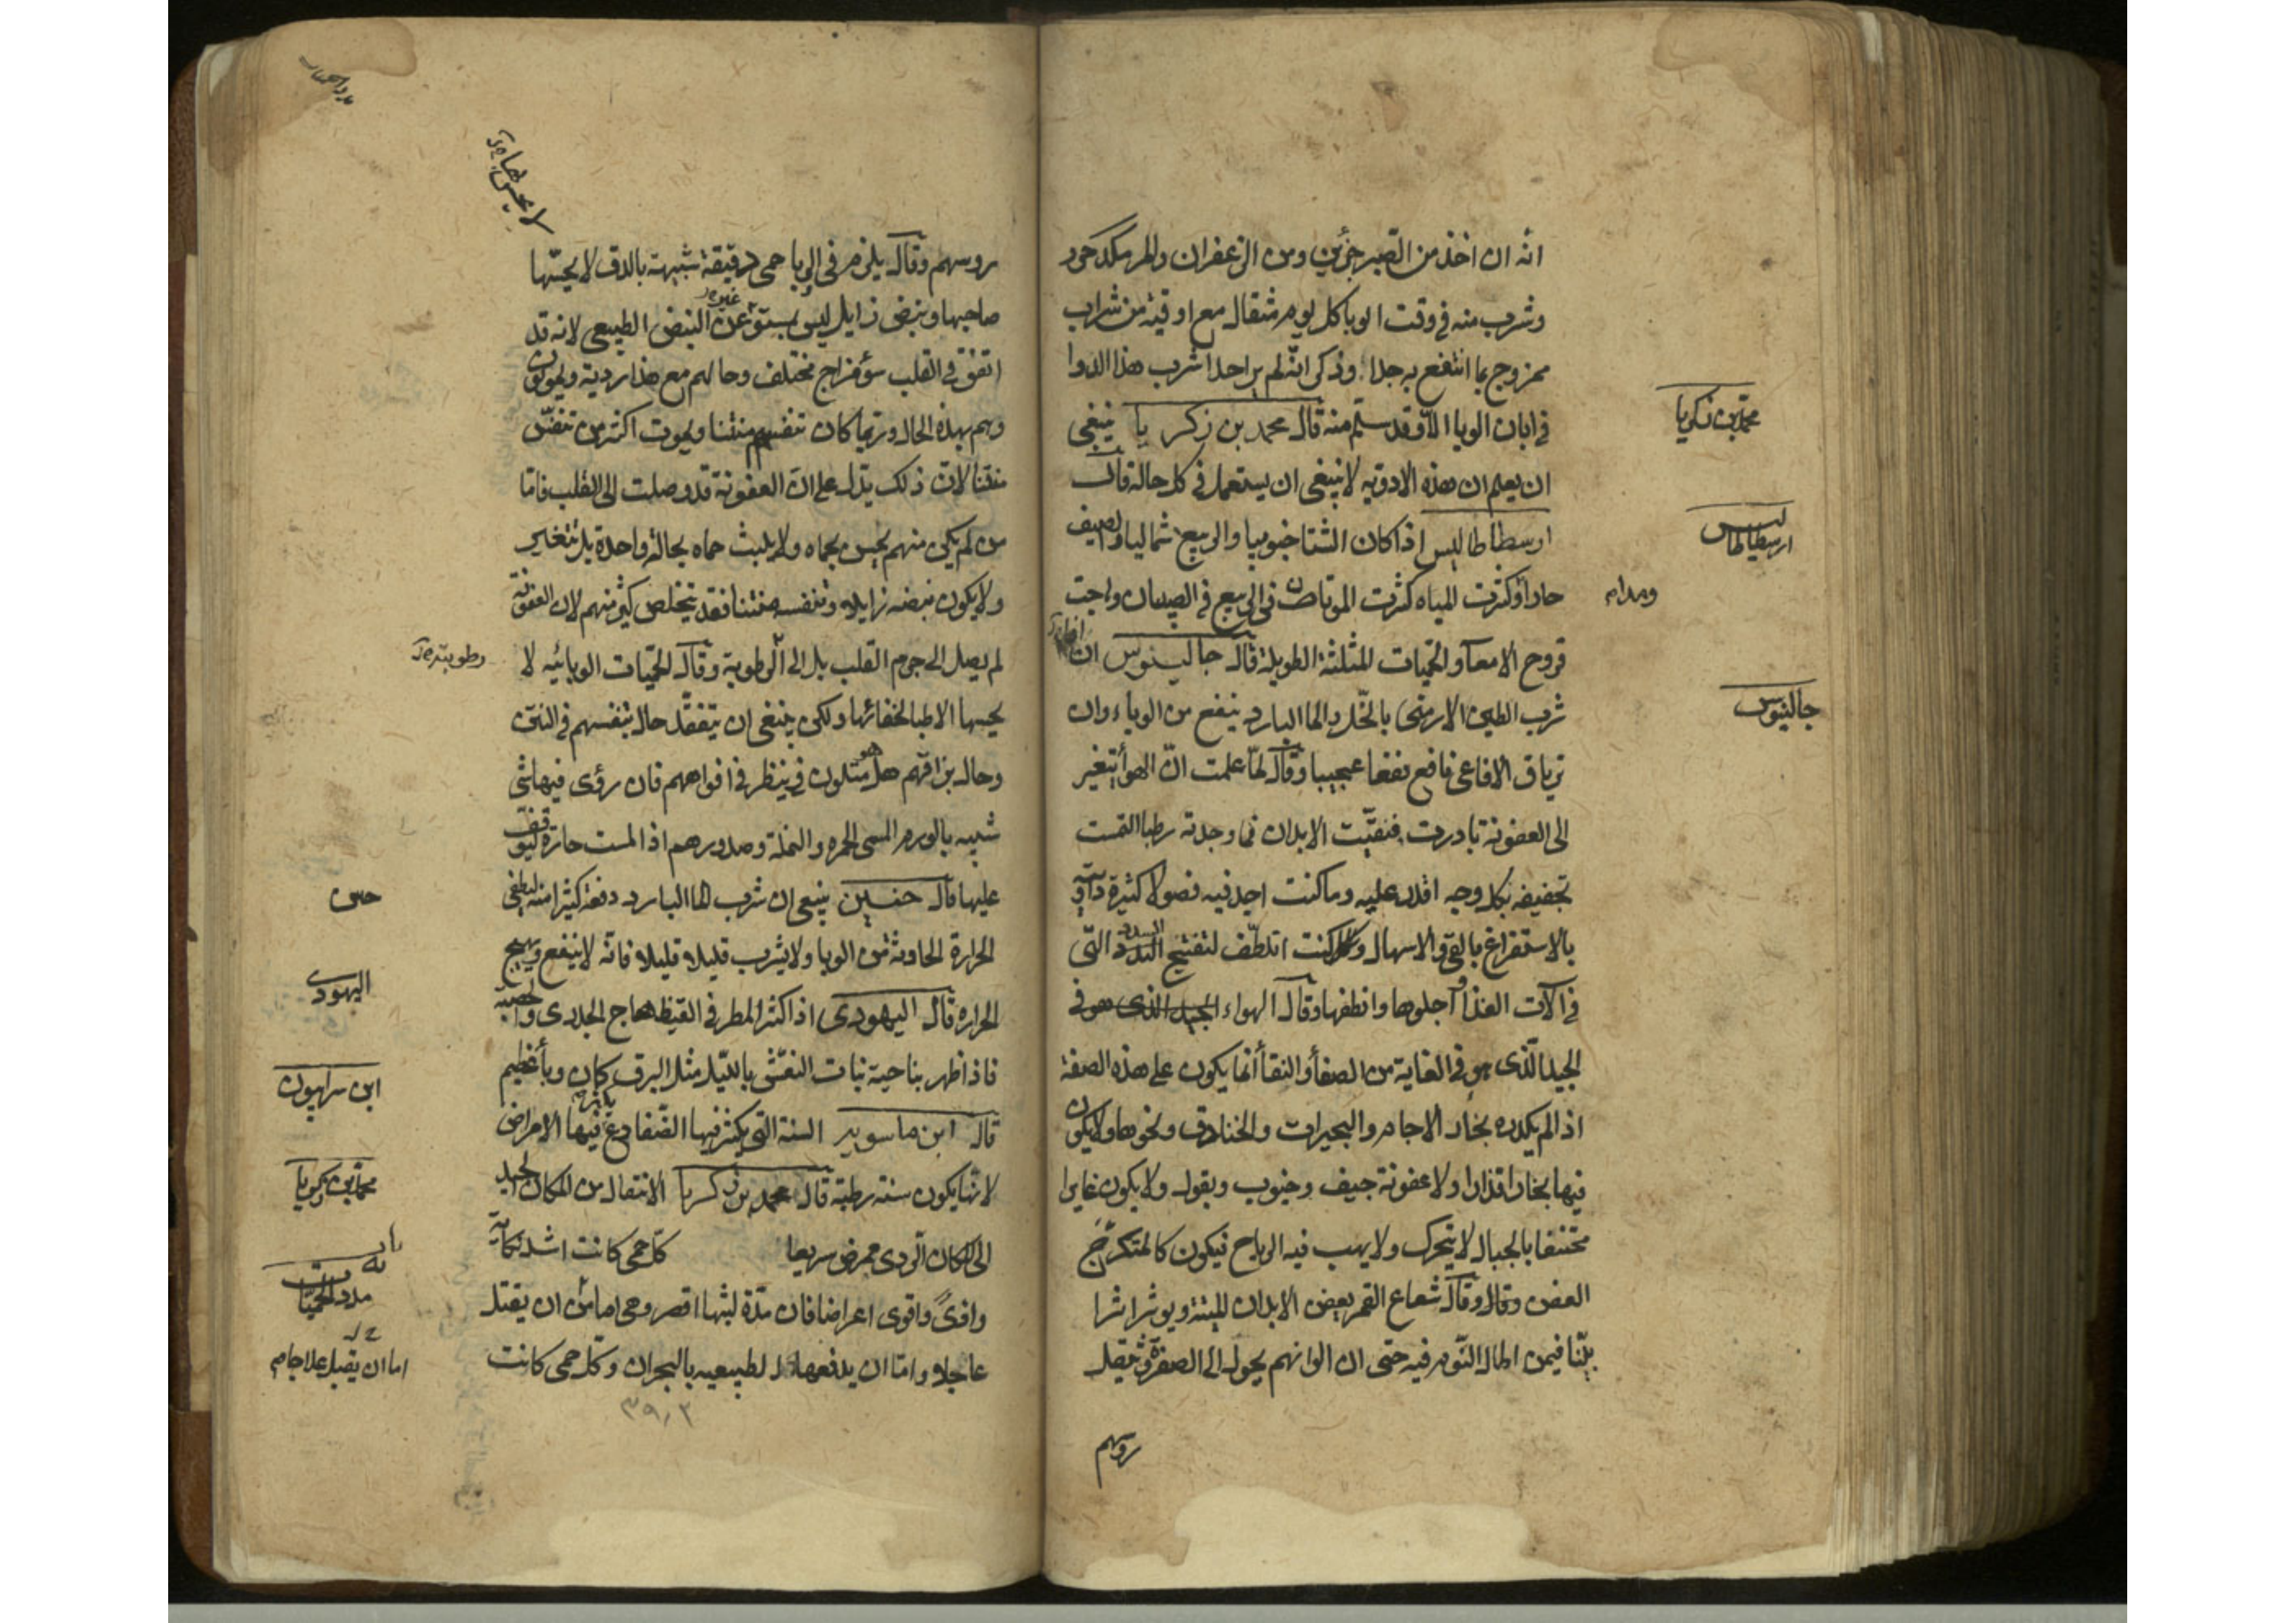 انه ان اخذ من الصبر جزئين ومن الزعفران والمر
وشرب منه فى وقت الوبا كل يوم مثقال مع اوقية من شراب
ممزوج بما انتفع به جدا وذكر انه لم ير احدا شرب هذا الدوا
فى ابان الوبا الا وقد سلم منه قال محمد بن زكريا ينبغى
محمد بن زكريا
ان يعلم ان هذه الادويه لا ينبغى ان يستعمل فى كل حالة قال
ارسطاطاليس اذا كان الشتا جنوبيا والربيع شماليا والصيف
ارسطاطاليس
حارا وكثرت المياه كثرت الموتان فى الربيع فى الصبيان واجت
قروح الامعآ والحميات المثلثة الطويلة قال جالينوس ان
شرب الطين الارمنى بالخل والما البارد ينفع من الوباء وان
جالينوس
ترياق الافاعى نافع نفعا عجيبا وقال لما علمت ان الهوأ يتغير
الى العفونة بادرت فنقيت الابدان فما وجدته رطبا التمست
تجفيفه بكل وجه اقدر عليه وما كنت اجد فيه فضولا كثيرة
بالاستفراغ بالقى والاسهال كنت اتلطف لتفتيح السدد التى
فى آلات الغذا اجلوها وانظفها وقال الهواء الجيد الذى هو فى
الجيد الذى هو فى الغاية من الصفأ والنقأ انما يكون على هذه الصفة
اذا لم يكدره بخار الاجام والبحيرات والخنادق ونحوها ولا يكون
فيها بخار اقذار ولا عفونة جيف وحبوب وبقول ولا يكون غايرا
مختنقا بالجبال لا يتحرك ولا يهب فيه الرياح فيكون كالمتكرج
العفن وقال وقال شعاع القمر يعفن الابدان الميتة ويوثر اثرا
بينا فيمن اطال النوم فيه حتى ان الوانهم يحول الى الصفرة ويثقل
روسهم
روسهم وقال يلزم فى الوبا حمى دقيقة شبيهة بالدق لا يحسها
صاحبها ونبض زايل ليس بمستو عن النبض الطبيعى لانه قد
اتفق فى القلب سؤ مزاج مختلف وحالهم مع هذا ردية ويموتون
وهم بهذه الحال وربما كان تنفسهم منتنا ويموت اكثر من تنفس
منتنا لان ذلك يدل على ان العفونة قد وصلت الى القلب فاما
من لم يكن منهم يحس بحماه ولا يلبث حماه بحالة واحدة بل يتغير
ولا يكون نبضه زايلا وتنفسه منتنا فقد يتخلص كثير منهم لان العفونة
لم يصل الى جرم القلب بل الى الرطوبة وقال الحميات الوبائيه لا
رطوبته
يحسها الاطبا لخفائها ولكن ينبغى ان يتفقد حال تنفسهم فى النتن
وحال بزاقهم هل هو متلون فينظر فى افواههم فان رؤى فيها شى
شبيه بالورم المسمى الحمره والنملة وصدورهم اذا لمست حارة
عليها قال حنين ينبغى ان شرب الما البارد دفعة كثيرا منه ليطفى
حنين
الحرارة الحادثة من الوبا ولا يشرب قليلا قليلا فانه لا ينفع ويهيج
الحراره قال اليهودى اذا كثر المطر فى القيظ هاج الجدرى والحصبة
اليهودى
فاذا ظهر بناحية بنات النعش بالليل مثل البرق كان وبأ عظيم
ابن سرابيون
قال ابن ماسويه السنة التى يكثر فيها الضفادع فيها الامراض
لانها يكون سنة رطبة قال محمد بن زكريا الانتقال من المكان الجيد
محمد بن زكريا
الى المكان الردى ممرض سريعا كل حمى كانت اشد نكاية
واقوى اعراضا فان مدة لبثها اقصر وحى اما من ان يقتل
مدد الحميات
عاجلا واما ان يدفعها الطبيعيه بالبحران وكل حمى كانت
اما ان يقتل عاجلا